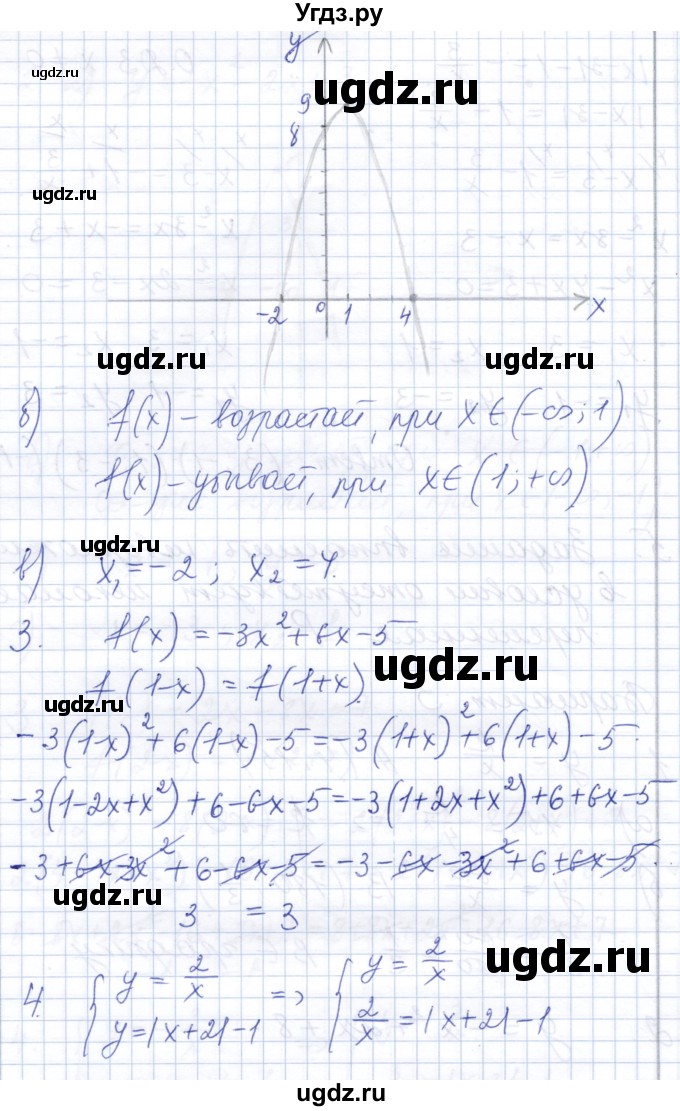 Угдз.ру
ugdz.ru
ugdz.ru
ugdz.ru
ugdz.ru
y
9
8
-2 0 1 4 x
ugdz.ru
ugdz.ru
б) f(x) - возрастает, при x∈(-∞; 1)
f(x) - убывает, при x∈(1; +∞)
ugdz.ru
в) x₁ = -2; x₂ = 4.
3. f(x) = -3x² + 6x - 5
ugdz.ru
f(1-x) = f(1+x).
ugdz.ru
-3(1-x)² + 6(1-x) - 5 = -3(1+x)² + 6(1+x) - 5.
-3(1-2x+x²) + 6 - 6x - 5 = -3(1+2x+x²) + 6 + 6x - 5
-3 + 6x - 3x² + 6 - 6x - 5 = -3 - 6x - 3x² + 6 + 6x - 5.
ugdz.ru
3 = 3
ugdz.ru
4. { y = 2/x
y = |x+2| - 1 => { y = 2/x
2/x = |x+2| - 1
ugdz.ru